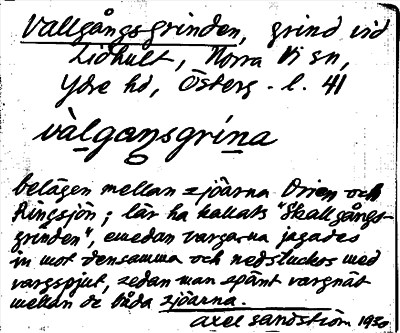 Vallgångsgrinden, grind vid
Lidhult, Norra Vi sn,
Ydre hd, Österg. l. 41
vàlgaŋsgrina
belägen mellan sjöarna Ören och
Ringsjön; lär ha kallats "Skallgångs-
grinden", emedan vargarna jagades
in mot densamma och nedstuckos med
vargspjut, sedan man spänt vargnät
mellan de båda sjöarna.
Axel Sandström 1930